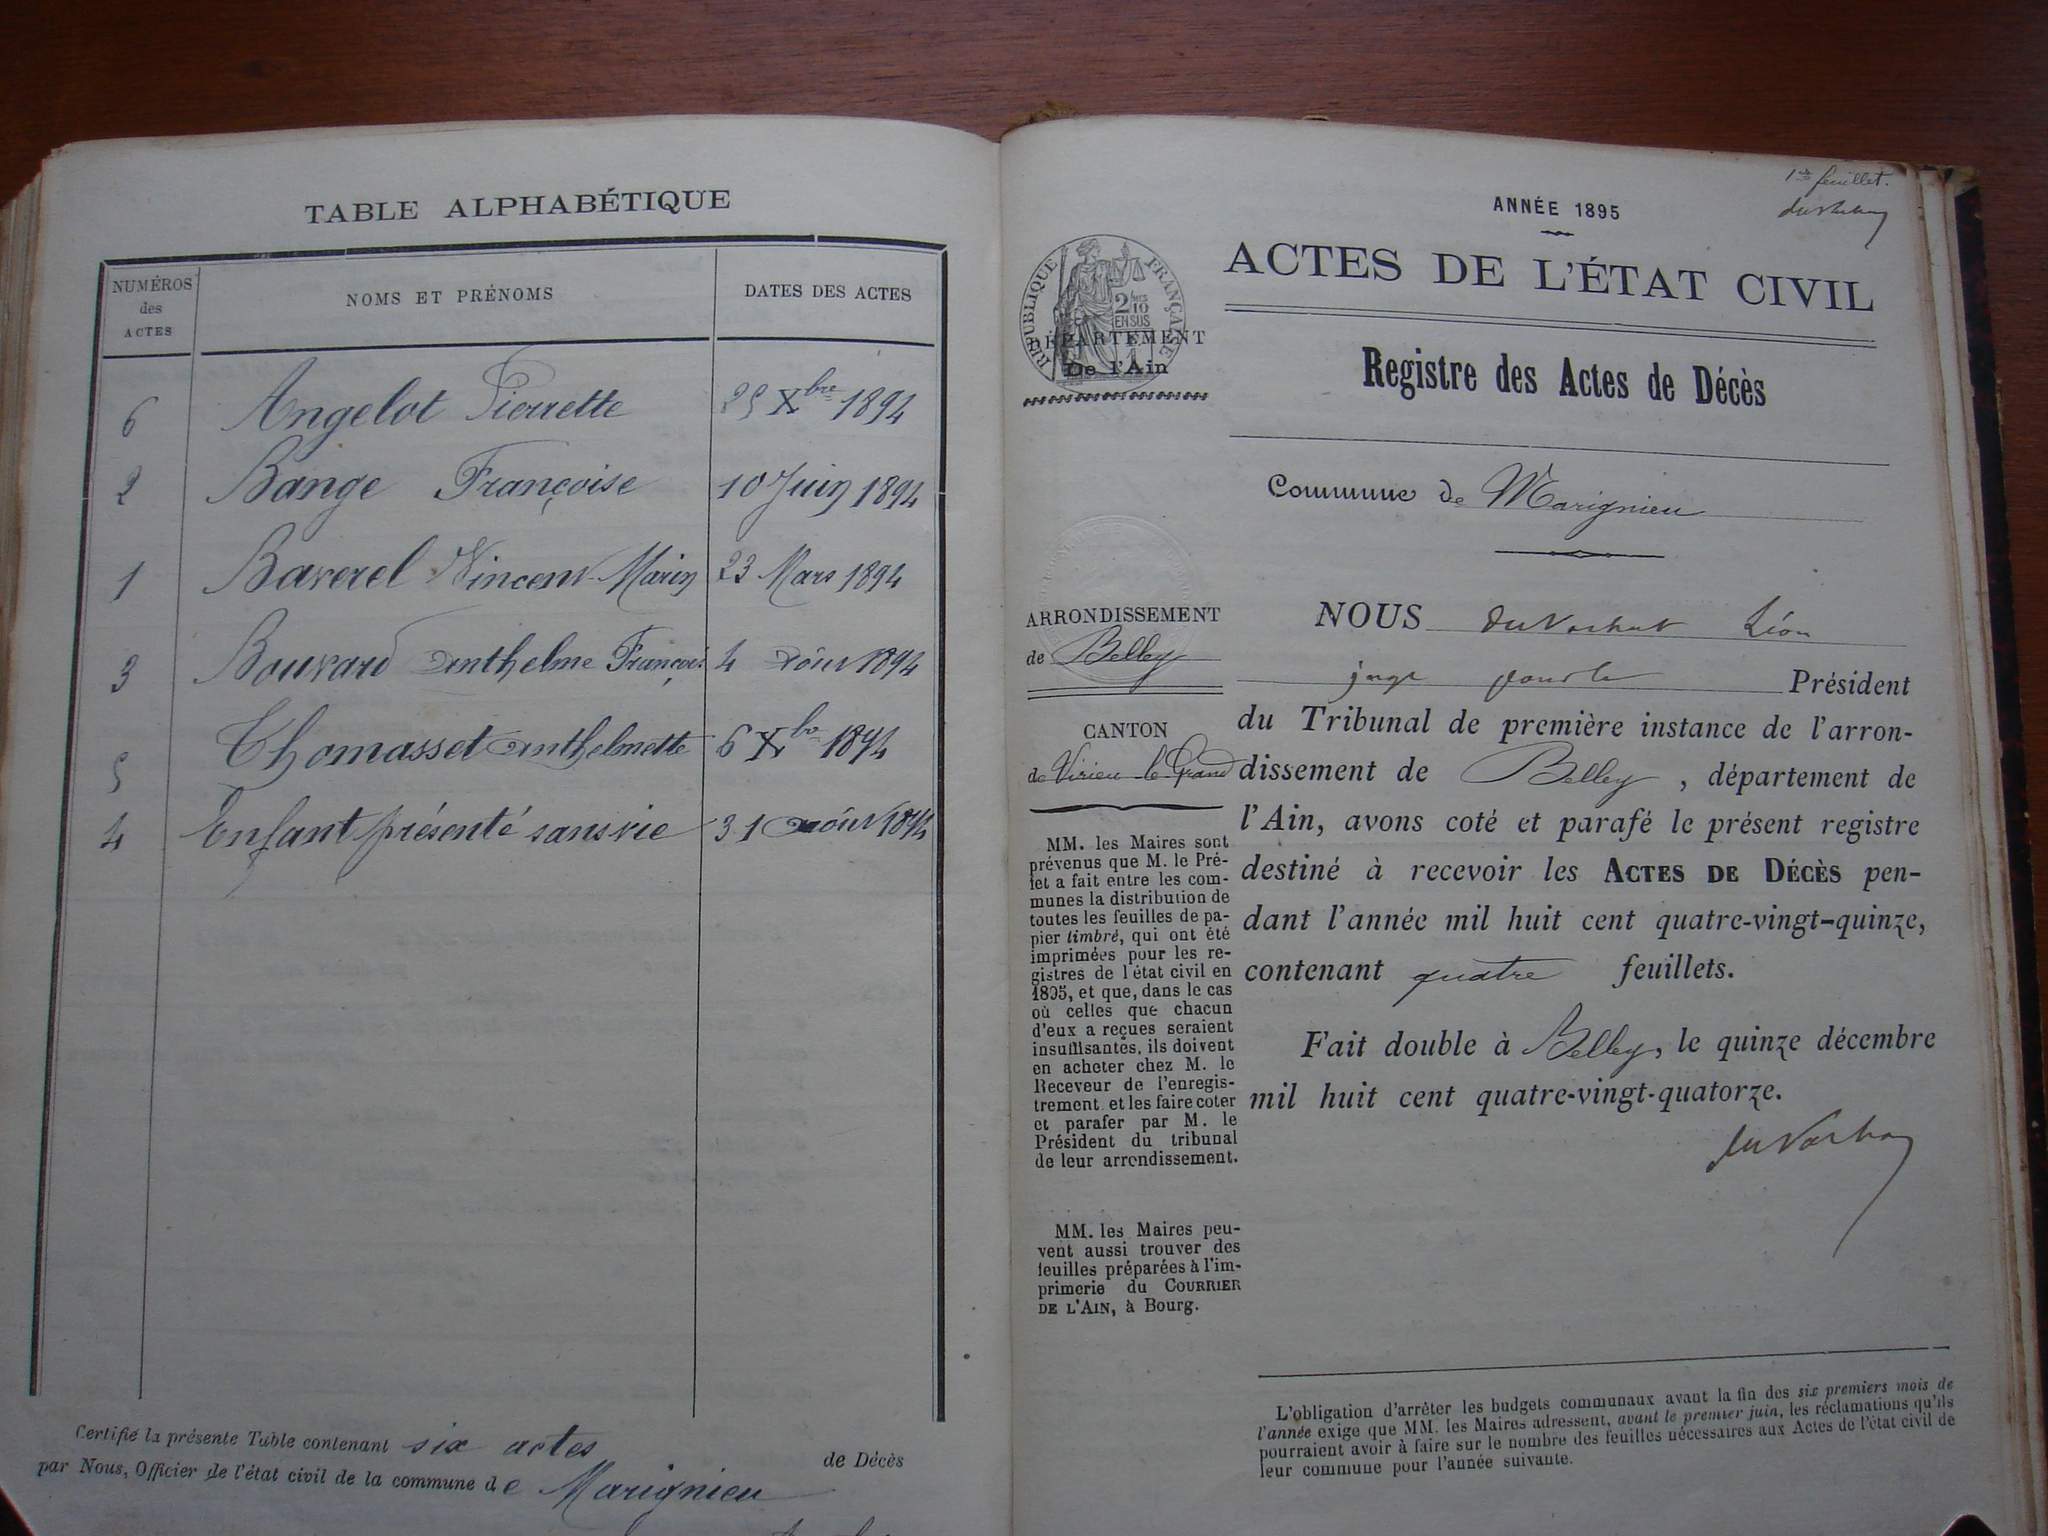 TABLE ALPHABÉTIQUE
NUMÉROS des ACTES
NOMS ET PRÉNOMS
DATES DES ACTES
6 Angelot Pierrette 25 Xbre 1894
2 Bange Françoise 10 Juin 1894
1 Baverel Vincent Marin 23 Mars 1894
3 Bouvard Anthelme François 4 Août 1894
5 Thomasset Anthelmette 6 Xbre 1894
4 Enfant présenté sans vie 31 Août 1894
Certifié la présente Table contenant six actes de Décès
par Nous, Officier de l'état civil de la commune de Marignieu
1er feuillet.
ANNÉE 1895
ACTES DE L'ÉTAT CIVIL
RÉPUBLIQUE FRANÇAISE
2/10
EN SUS
DÉPARTEMENT
De l'Ain
Registre des Actes de Décès
Commune de Marignieu
ARRONDISSEMENT
de Belley
CANTON
de Virieu le Grand
MM. les Maires sont
prévenus que M. le Pré-
fet a fait entre les com-
munes la distribution de
toutes les feuilles de pa-
pier timbré, qui ont été
imprimées pour les re-
gistres de l'état civil en
1895, et que, dans le cas
où celles que chacun
d'eux a reçues seraient
insuffisantes, ils doivent
en acheter chez M. le
Receveur de l'enregis-
trement et les faire coter
et parafer par M. le
Président du tribunal
de leur arrondissement.
MM. les Maires peu-
vent aussi trouver des
feuilles préparées à l'im-
primerie du COURRIER
DE L'AIN, à Bourg.
NOUS Léon
juge pour le Président
du Tribunal de première instance de l'arron-
dissement de Belley, département de
l'Ain, avons coté et parafé le présent registre
destiné à recevoir les ACTES DE DÉCÈS pen-
dant l'année mil huit cent quatre-vingt-quinze,
contenant quatre feuillets.
Fait double à Belley, le quinze décembre
mil huit cent quatre-vingt-quatorze.
L'obligation d'arrêter les budgets communaux avant la fin des six premiers mois de
l'année exige que MM. les Maires adressent, avant le premier juin, les réclamations qu'ils
pourraient avoir à faire sur le nombre des feuilles nécessaires aux Actes de l'état civil de
leur commune pour l'année suivante.